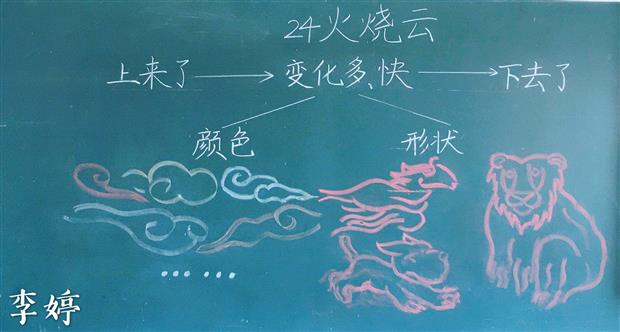 24火烧云
上来了 变化多、快 下去了
颜色 形状
……
李婷